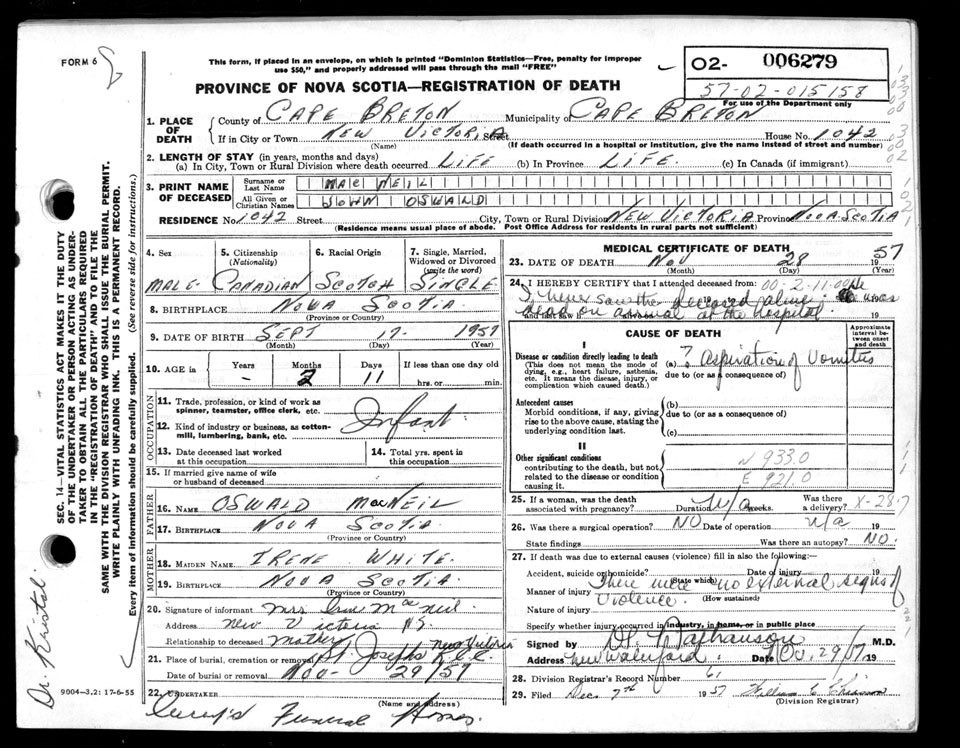 FORM 6
This form, if placed in an envelope, on which is printed "Dominion Statistics—Free, penalty for improper
use $50," and properly addressed will pass through the mail "FREE"
O2- 006279
57-02-015158
For use of the Department only
PROVINCE OF NOVA SCOTIA—REGISTRATION OF DEATH
1. PLACE OF DEATH
County of CAPE BRETON Municipality of CAPE BRETON
If in City or Town NEW VICTORIA Street House No. 1042
(Name) (If death occurred in a hospital or institution, give the name instead of street and number)
2. LENGTH OF STAY (in years, months and days)
(a) In City, Town or Rural Division where death occurred LIFE (b) In Province LIFE. (c) In Canada (if immigrant)
3. PRINT NAME OF DECEASED
Surname or Last Name MacNEIL
All Given or Christian Names JOHN OSWALD
RESIDENCE No. 1042 Street City, Town or Rural Division NEW VICTORIA Province NOVA SCOTIA
(Residence means usual place of abode. Post Office Address for residents in rural parts not sufficient)
4. Sex MALE
5. Citizenship (Nationality) CANADIAN
6. Racial Origin SCOTCH
7. Single, Married, Widowed or Divorced (write the word) SINGLE
8. BIRTHPLACE NOVA SCOTIA.
(Province or Country)
9. DATE OF BIRTH SEPT 17 1957
(Month) (Day) (Year)
10. AGE in Years - Months 2 Days 11 If less than one day old hrs. or min.
OCCUPATION
11. Trade, profession, or kind of work as spinner, teamster, office clerk, etc.
Infant
12. Kind of industry or business, as cotton-mill, lumbering, bank, etc.
13. Date deceased last worked at this occupation
14. Total yrs. spent in this occupation
15. If married give name of wife or husband of deceased
FATHER
16. NAME OSWALD MacNEIL
17. BIRTHPLACE NOVA SCOTIA
(Province or Country)
MOTHER
18. MAIDEN NAME IRENE WHITE.
19. BIRTHPLACE NOVA SCOTIA.
(Province or Country)
20. Signature of informant Mrs Irene Mac Neil
Address New Victoria N.S.
Relationship to deceased Mother
21. Place of burial, cremation or removal St. Josephs New Victoria
Date of burial or removal Nov- 29/57
22. UNDERTAKER
(Name and address)
Funeral Home.
MEDICAL CERTIFICATE OF DEATH
23. DATE OF DEATH Nov 28 1957
(Month) (Day) (Year)
24. I HEREBY CERTIFY that I attended deceased from: 00-2-11-00
I never saw the deceased alive. He was
dead on arrival at the hospital.
CAUSE OF DEATH
Approximate interval between onset and death
I
Disease or condition directly leading to death (a) ? Aspiration of Vomitus
(This does not mean the mode of dying, e.g., heart failure, asthenia, etc. It means the disease, injury, or complication which caused death.)
due to (or as a consequence of)
Antecedent causes
Morbid conditions, if any, giving rise to the above cause, stating the underlying condition last.
(b)
due to (or as a consequence of)
(c)
II
Other significant conditions
contributing to the death, but not related to the disease or condition causing it.
N 933.0
E 921.0
25. If a woman, was the death associated with pregnancy? Duration N/A weeks. Was there a delivery? X-28-7
26. Was there a surgical operation? NO Date of operation n/a 19
State findings Was there an autopsy? NO.
27. If death was due to external causes (violence) fill in also the following:
Accident, suicide or homicide? Date of injury 19
(State which)
Manner of injury There were no external signs of
violence. (How sustained)
Nature of injury
Specify whether injury occurred in industry, in home, or in public place
Signed by M.D.
Address New Waterford. Date Nov. 29/57 19
28. Division Registrar's Record Number 61
29. Filed Dec. 7th 1957
(Division Registrar)
SEC. 14—VITAL STATISTICS ACT MAKES IT THE DUTY
OF THE UNDERTAKER OR PERSON ACTING AS UNDER-
TAKER TO OBTAIN ALL THE PARTICULARS REQUIRED
IN THE "REGISTRATION OF DEATH" AND TO FILE THE
SAME WITH THE DIVISION REGISTRAR WHO SHALL ISSUE THE BURIAL PERMIT.
WRITE PLAINLY WITH UNFADING INK. THIS IS A PERMANENT RECORD.
Every item of information should be carefully supplied. (See reverse side for instructions.)
9004—3,2: 17-6-55